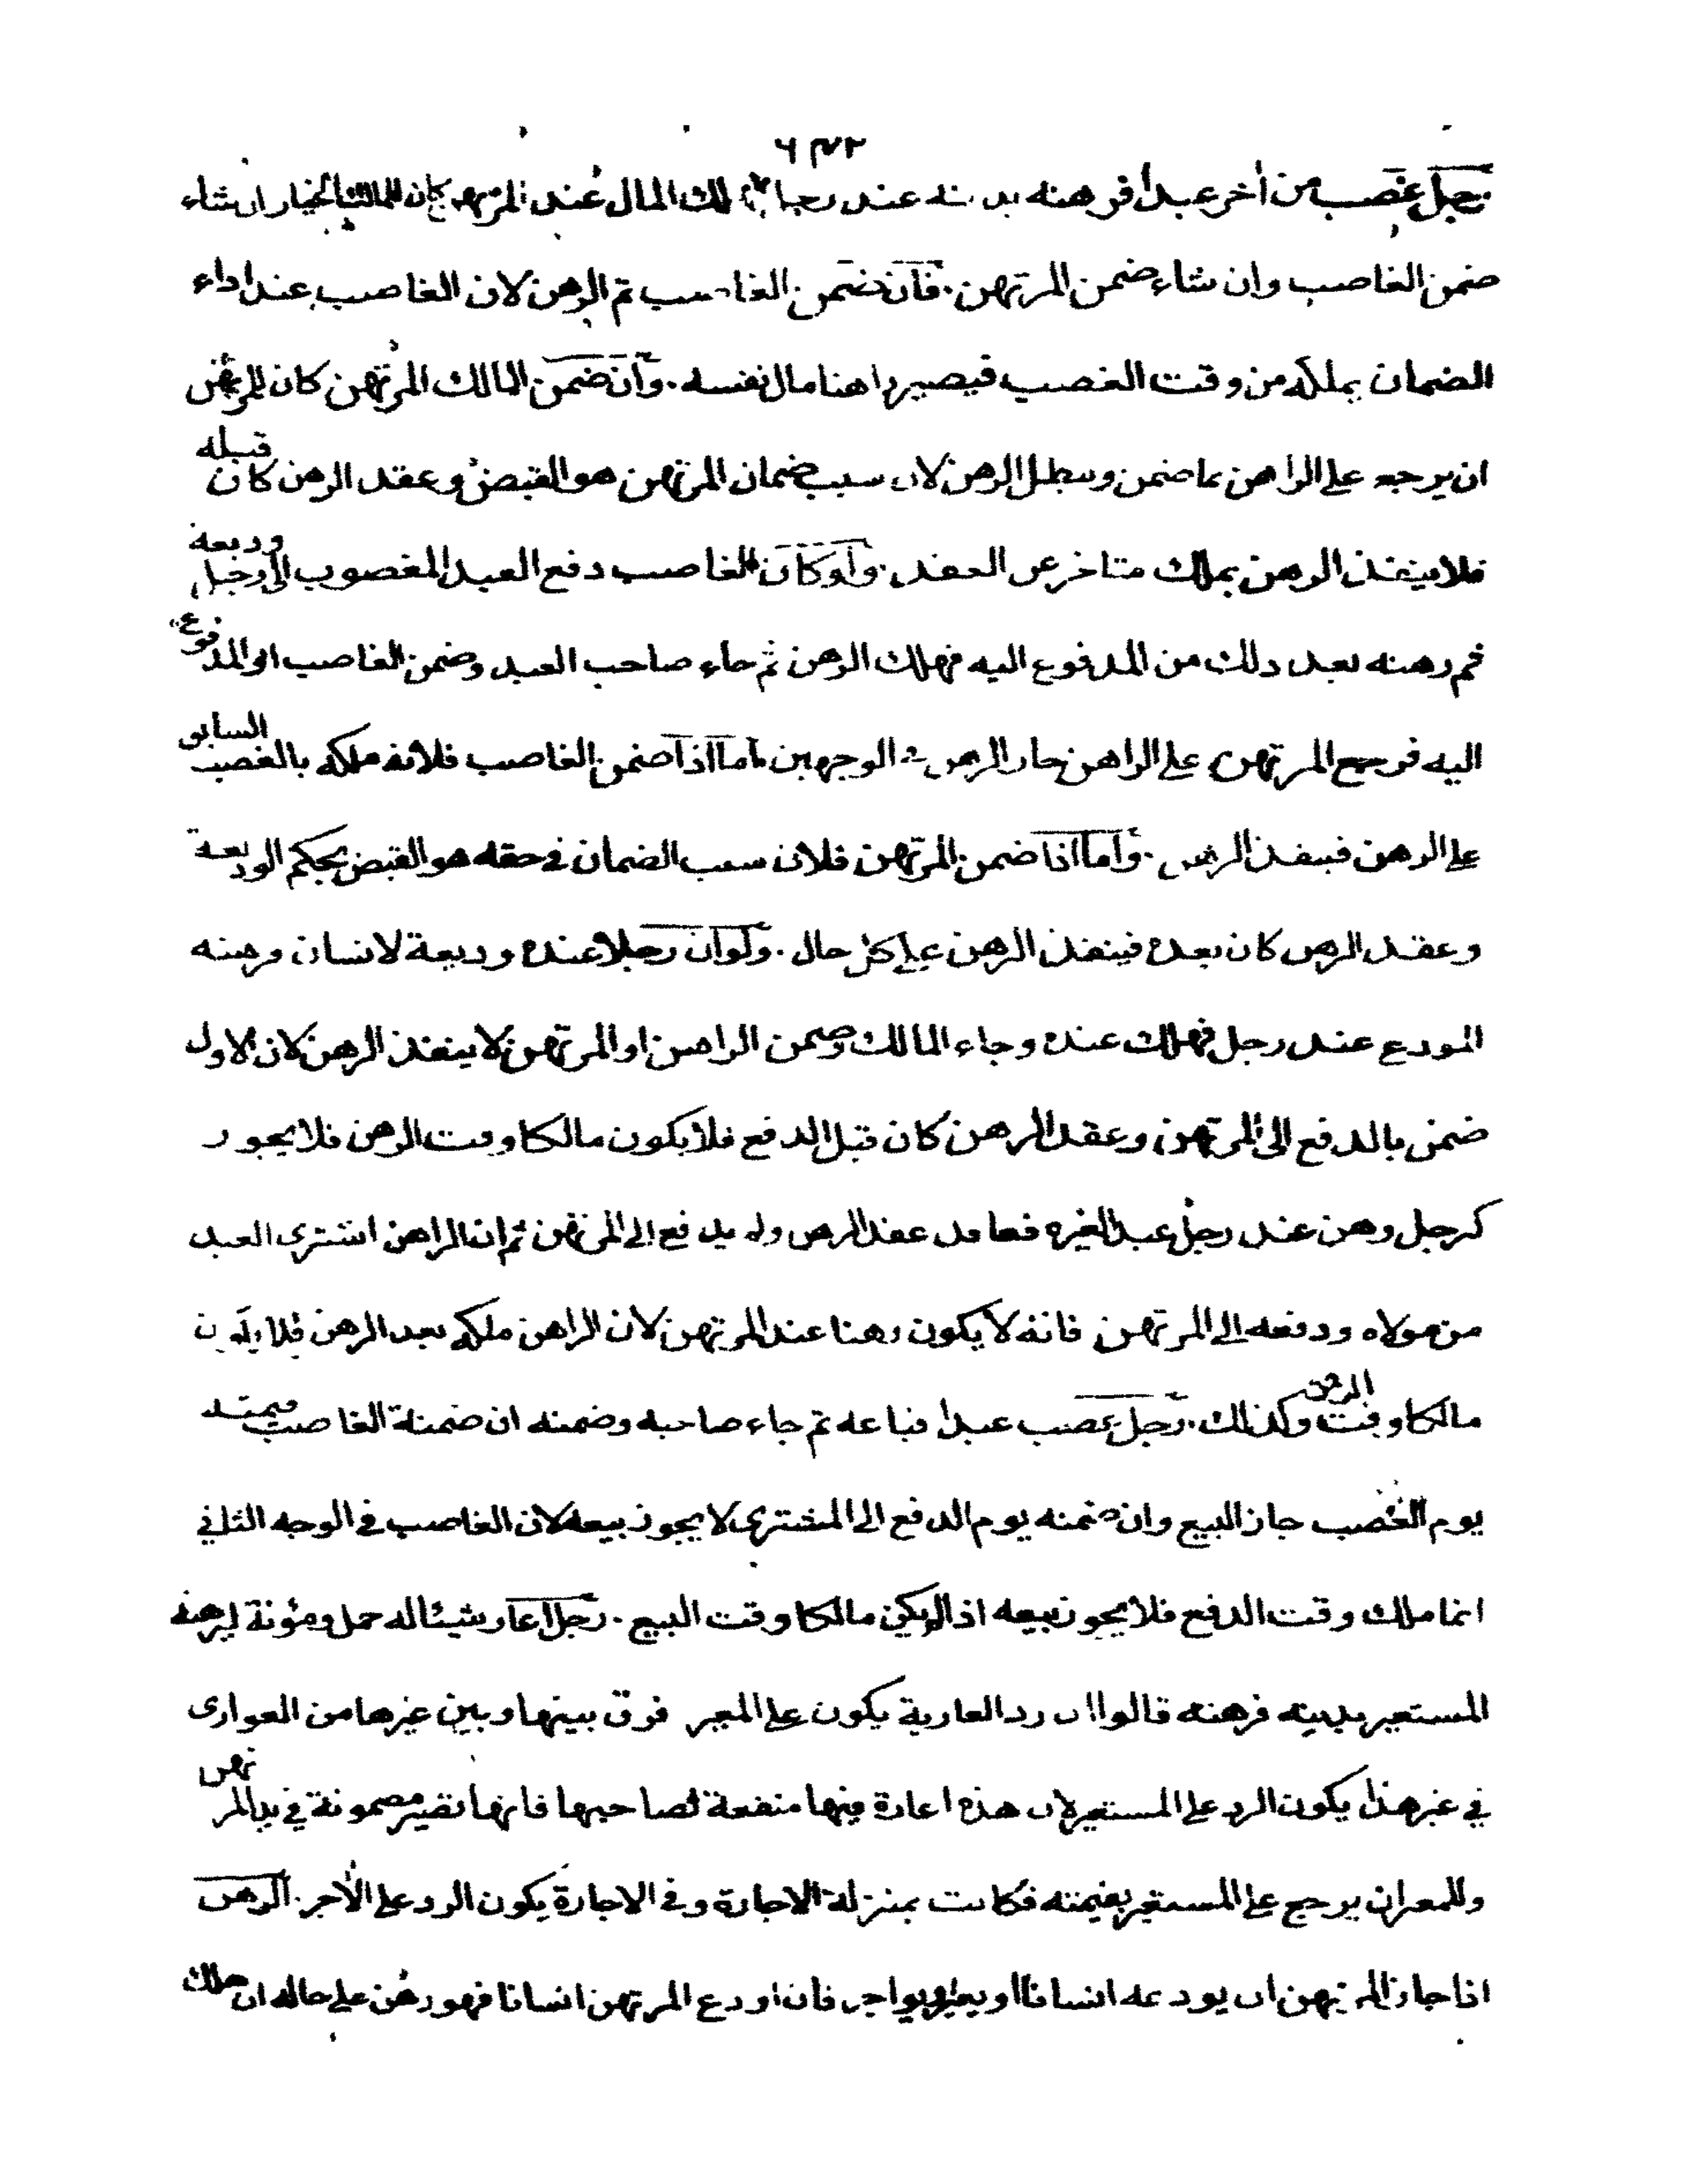 ٦٣٢
رجل غصب من أخر عبدا فرهنه بدينه عند رجل لك المال عند المرتهن كان للمالك الخيار ان شاء
ضمن الغاصب وان شاء ضمن المرتهن . فان ضمن الغاصب تم الرهن لان الغاصب عند اداء
الضمان يملكه من وقت الغصب فيصير راهنا مال نفسه . وان ضمن المالك المرتهن كان للمرتهن
ان يرجع على الراهن بما ضمن وبطل الرهن لان سبب ضمان المرتهن هو القبض وعقد الرهن كان قبله
فلا ينفذ الرهن بملك متاخر عن العقد . ولو كان الغاصب دفع العبد المغصوب الى رجل وديعة
ثم رهنه بعد ذلك من المدفوع اليه فهلك الرهن ثم جاء صاحب العبد وضمن الغاصب او المدفوع
اليه فرجع المرتهن على الراهن جاز الرهن في الوجهين . اما اذا ضمن الغاصب فلانه ملكه بالغصب السابق
على الرهن فينفذ الرهن . واما اذا ضمن المرتهن فلان سبب الضمان في حقه هو القبض بحكم الوديعة
وعقد الرهن كان بعده فينفذ الرهن على كل حال . ولو ان رجلا عنده وديعة لانسان فرهنه
المودع عند رجل فهلك عنده وجاء المالك وضمن الراهن او المرتهن لا ينفذ الرهن لان الاول
ضمن بالدفع الى المرتهن وعقد الرهن كان قبل الدفع فلا يكون مالكا وقت الرهن فلا يجوز
كرجل رهن عند رجل عبدا لغيره فعا قد عقد الرهن ولم يدفع الى المرتهن ثم ان الراهن اشترى العبد
من مولاه ودفعه الى المرتهن فانه لا يكون رهنا عند المرتهن لان الراهن ملكه بعد الرهن فلا يكون
مالكا وقت الرهن وكذلك . رجل غصب عبدا فباعه ثم جاء صاحبه وضمنه ان ضمنه الغاصب قيمته
يوم الغصب جاز البيع وان ضمنه يوم الدفع الى المشترى لا يجوز بيعه لان الغاصب في الوجه الثاني
انما ملك وقت الدفع فلا يجوز بيعه اذ لم يكن مالكا وقت البيع . رجل اعار شيئا له حمل ومؤنة ليرهنه
المستعير بدينه فرهنه قالوا ان رد العارية يكون على المعير فرق بينها وبين غيرها من العوارى
في غير هذا يكون الرد على المستعير لان هذه اعارة فيها منفعة لصاحبها فانها تصير مضمونة في يد المرتهن
وللمعير ان يرجع على المستعير بقيمته فكانت بمنزلة الاجارة وفي الاجارة يكون الرد على الآجر . الرهن
اذا جاز للمرتهن ان يودعه انسانا او يعير او يواجر فان اودع المرتهن انسانا فهو رهن على حاله ان هلك